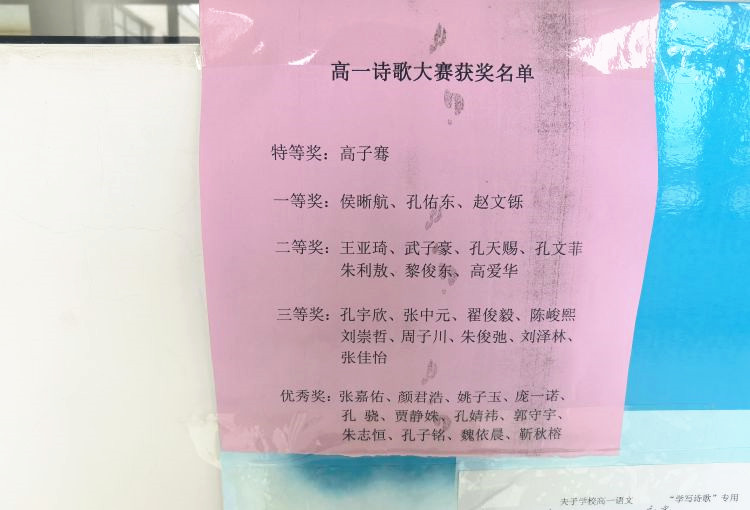 高一诗歌大赛获奖名单
特等奖：高子骞
一等奖：侯晰航、孔佑东、赵文铄
二等奖：王亚琦、武子豪、孔天赐、孔文菲
朱利敖、黎俊东、高爱华
三等奖：孔宇欣、张中元、翟俊毅、陈峻熙
刘崇哲、周子川、朱俊弛、刘泽林、
张佳怡
优秀奖：张嘉佑、颜君浩、姚子玉、庞一诺、
孔 骁、贾静姝、孔婧祎、郭守宇、
朱志恒、孔子铭、魏依晨、靳秋榕
夫子学校高一语文 “学写诗歌”专用